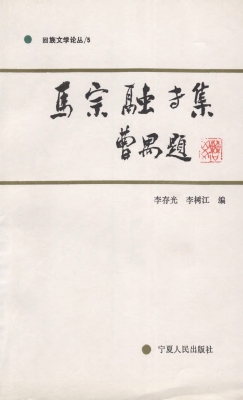 回族文学论丛/5
馬宗融专集
曹禺題
李存光 李树江 编
宁夏人民出版社